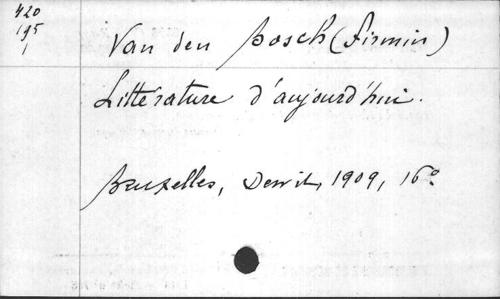 420
195
1
Van den Bosch (Firmin)
Littérature d'aujourd'hui.
Bruxelles, Dewit, 1909, 16°